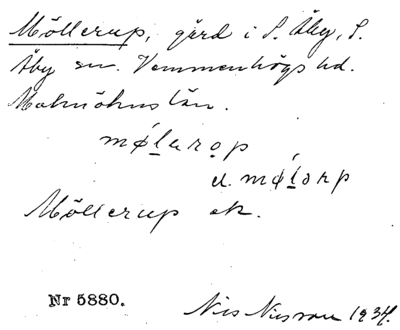 Möllerup, gård i S. Åby, S.
Åby sn. Vemmenhögs hd.
Malmöhus län.
mǿlarop
el. mǿlərp
Möllerup ek.
Nr 5880.
Nils Nilsson 1934.